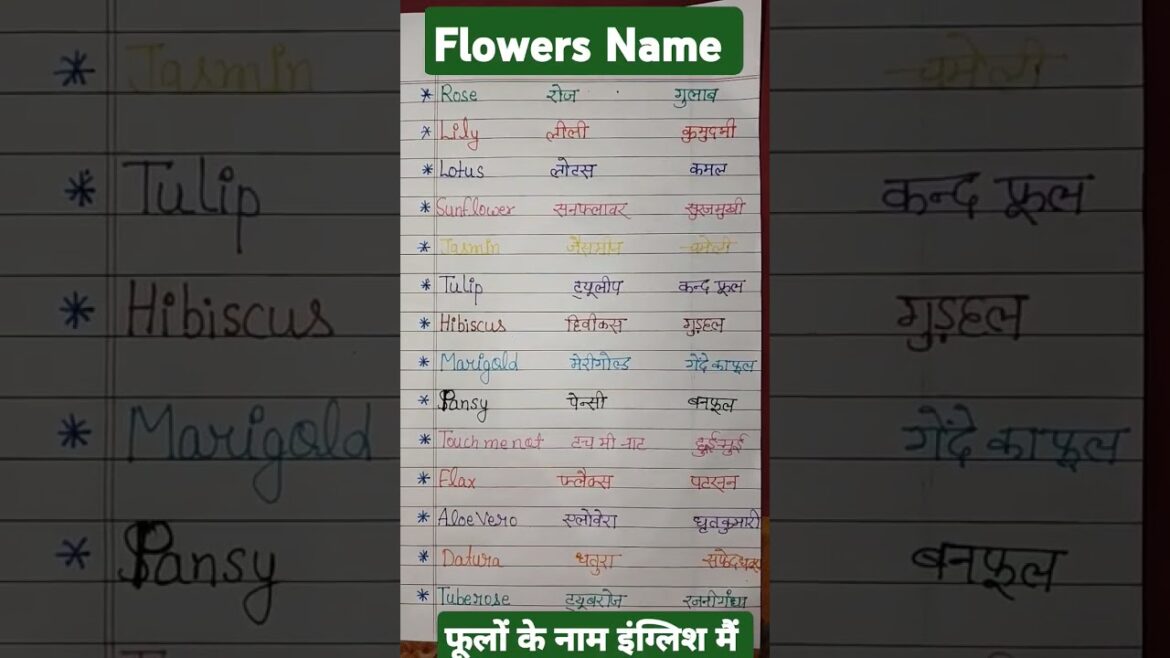 Flowers Name
* Rose रोज गुलाब
* Lily लीली कुमुदमी
* Lotus लोटस कमल
* Sunflower सनफ्लावर सुरजमुखी
* Jasmin जैसमीन चमेली
* Tulip ट्यूलीप कन्द फूल
* Hibiscus हिवीकस गुड़हल
* Marigold मेरीगोल्ड गेंदे का फूल
* Pansy पेन्सी बनफूल
* Touch me not टच मी नाट छुईमुई
* Flax फ्लैक्स पटसन
* Aloe Vero एलोवेरा घृतकुमारी
* Datura धतुरा
* Tuberose ट्यूबरोज रजनीगंधा
फूलों के नाम इंग्लिश मैं
* Jasmin चमेली
* Tulip कन्द फूल
* Hibiscus गुड़हल
* Marigold गेंदे का फूल
* Pansy बनफूल